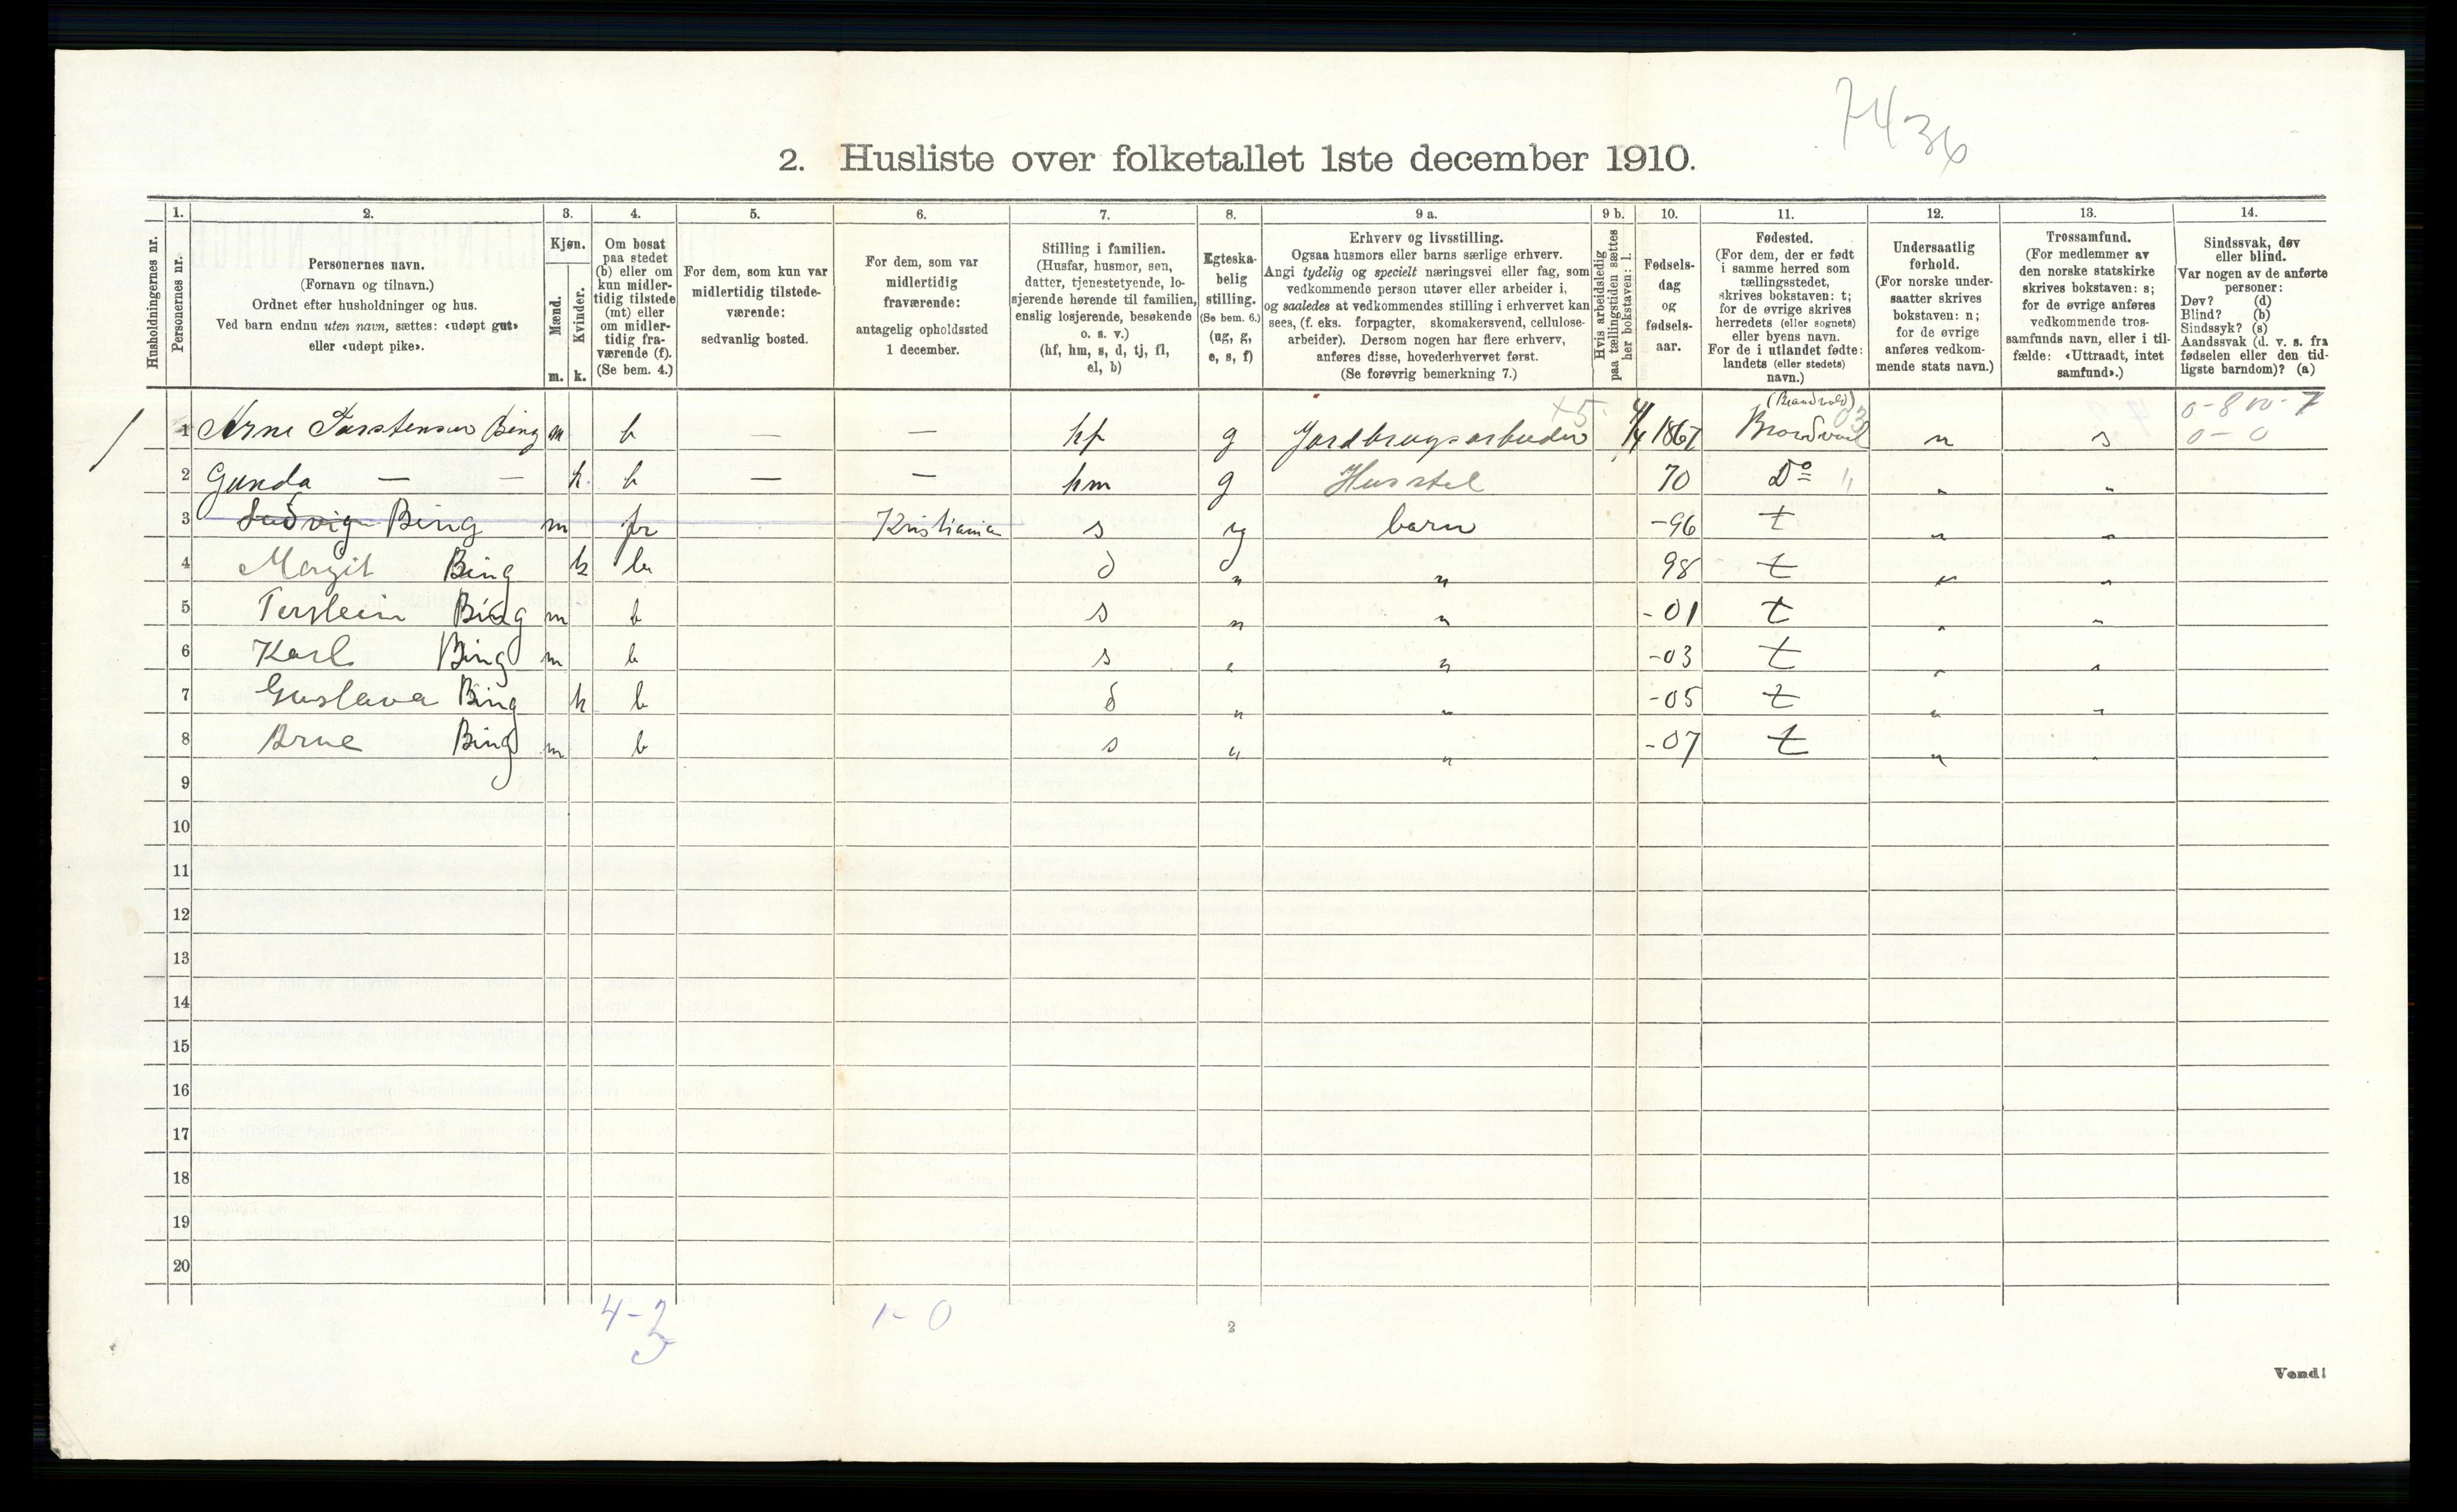 7436
2. Husliste over folketallet 1ste december 1910.
1. 2. 3. 4. 5. 6. 7. 8. 9 a. 9 b. 10. 11. 12. 13. 14.
Husholdningernes nr.
Personernes nr.
Personernes navn.
(Fornavn og tilnavn.)
Ordnet efter husholdninger og hus.
Ved barn endnu uten navn, sættes: «udøpt gut»
eller «udøpt pike».
Kjøn.
Mænd.
Kvinder.
m. k.
Om bosat
paa stedet
(b) eller om
kun midler-
tidig tilstede
(mt) eller
om midler-
tidig fra-
værende (f).
(Se bem. 4.)
For dem, som kun var
midlertidig tilstede-
værende:
sedvanlig bosted.
For dem, som var
midlertidig
fraværende:
antagelig opholdssted
1 december.
Stilling i familien.
(Husfar, husmor, søn,
datter, tjenestetyende, lo-
sjerende hørende til familien,
enslig losjerende, besøkende
o. s. v.)
(hf, hm, s, d, tj, fl,
el, b)
Egteska-
belig
stilling.
(Se bem. 6.)
(ug, g,
e, s, f)
Erhverv og livsstilling.
Ogsaa husmors eller barns særlige erhverv.
Angi tydelig og specielt næringsvei eller fag, som
vedkommende person utøver eller arbeider i,
og saaledes at vedkommendes stilling i erhvervet kan
sees, (f. eks. forpagter, skomakersvend, cellulose-
arbeider). Dersom nogen har flere erhverv,
anføres disse, hovederhvervet først.
(Se forøvrig bemerkning 7.)
Hvis arbeidsledig
paa tællingstiden sættes
her bokstaven: l.
Fødsels-
dag
og
fødsels-
aar.
Fødested.
(For dem, der er født
i samme herred som
tællingsstedet,
skrives bokstaven: t;
for de øvrige skrives
herredets (eller sognets)
eller byens navn.
For de i utlandet fødte:
landets (eller stedets)
navn.)
Undersaatlig
forhold.
(For norske under-
saatter skrives
bokstaven: n;
for de øvrige
anføres vedkom-
mende stats navn.)
Trossamfund.
(For medlemmer av
den norske statskirke
skrives bokstaven: s;
for de øvrige anføres
vedkommende tros-
samfunds navn, eller i til-
fælde: «Uttraadt, intet
samfund».)
Sindssvak, døv
eller blind.
Var nogen av de anførte
personer:
Døv? (d)
Blind? (b)
Sindssyk? (s)
Aandssvak (d. v. s. fra
fødselen eller den tid-
ligste barndom)? (a)
1 1 Arne Torstensen Bing m b — — hf g Jordbrugsarbeider 4/4 1867 (Brandvold) Brandvol n s
03
0-0
2 Gunda — — k. b — — hm g Husstel 70 Do " "
3 Ludvig Bing m fr Kristiania s ug barn -96 t " "
4 Margit Bing k b d " " 98 t " "
5 Torstein Bing m b s " " -01 t " "
6 Karl Bing m b s " " -03 t " "
7 Gustava Bing k b d " " -05 t " "
8 Arne Bing m b s " " -07 t " "
9
10
11
12
13
14
15
16
17
18
19
20
1-0
2
Vend!